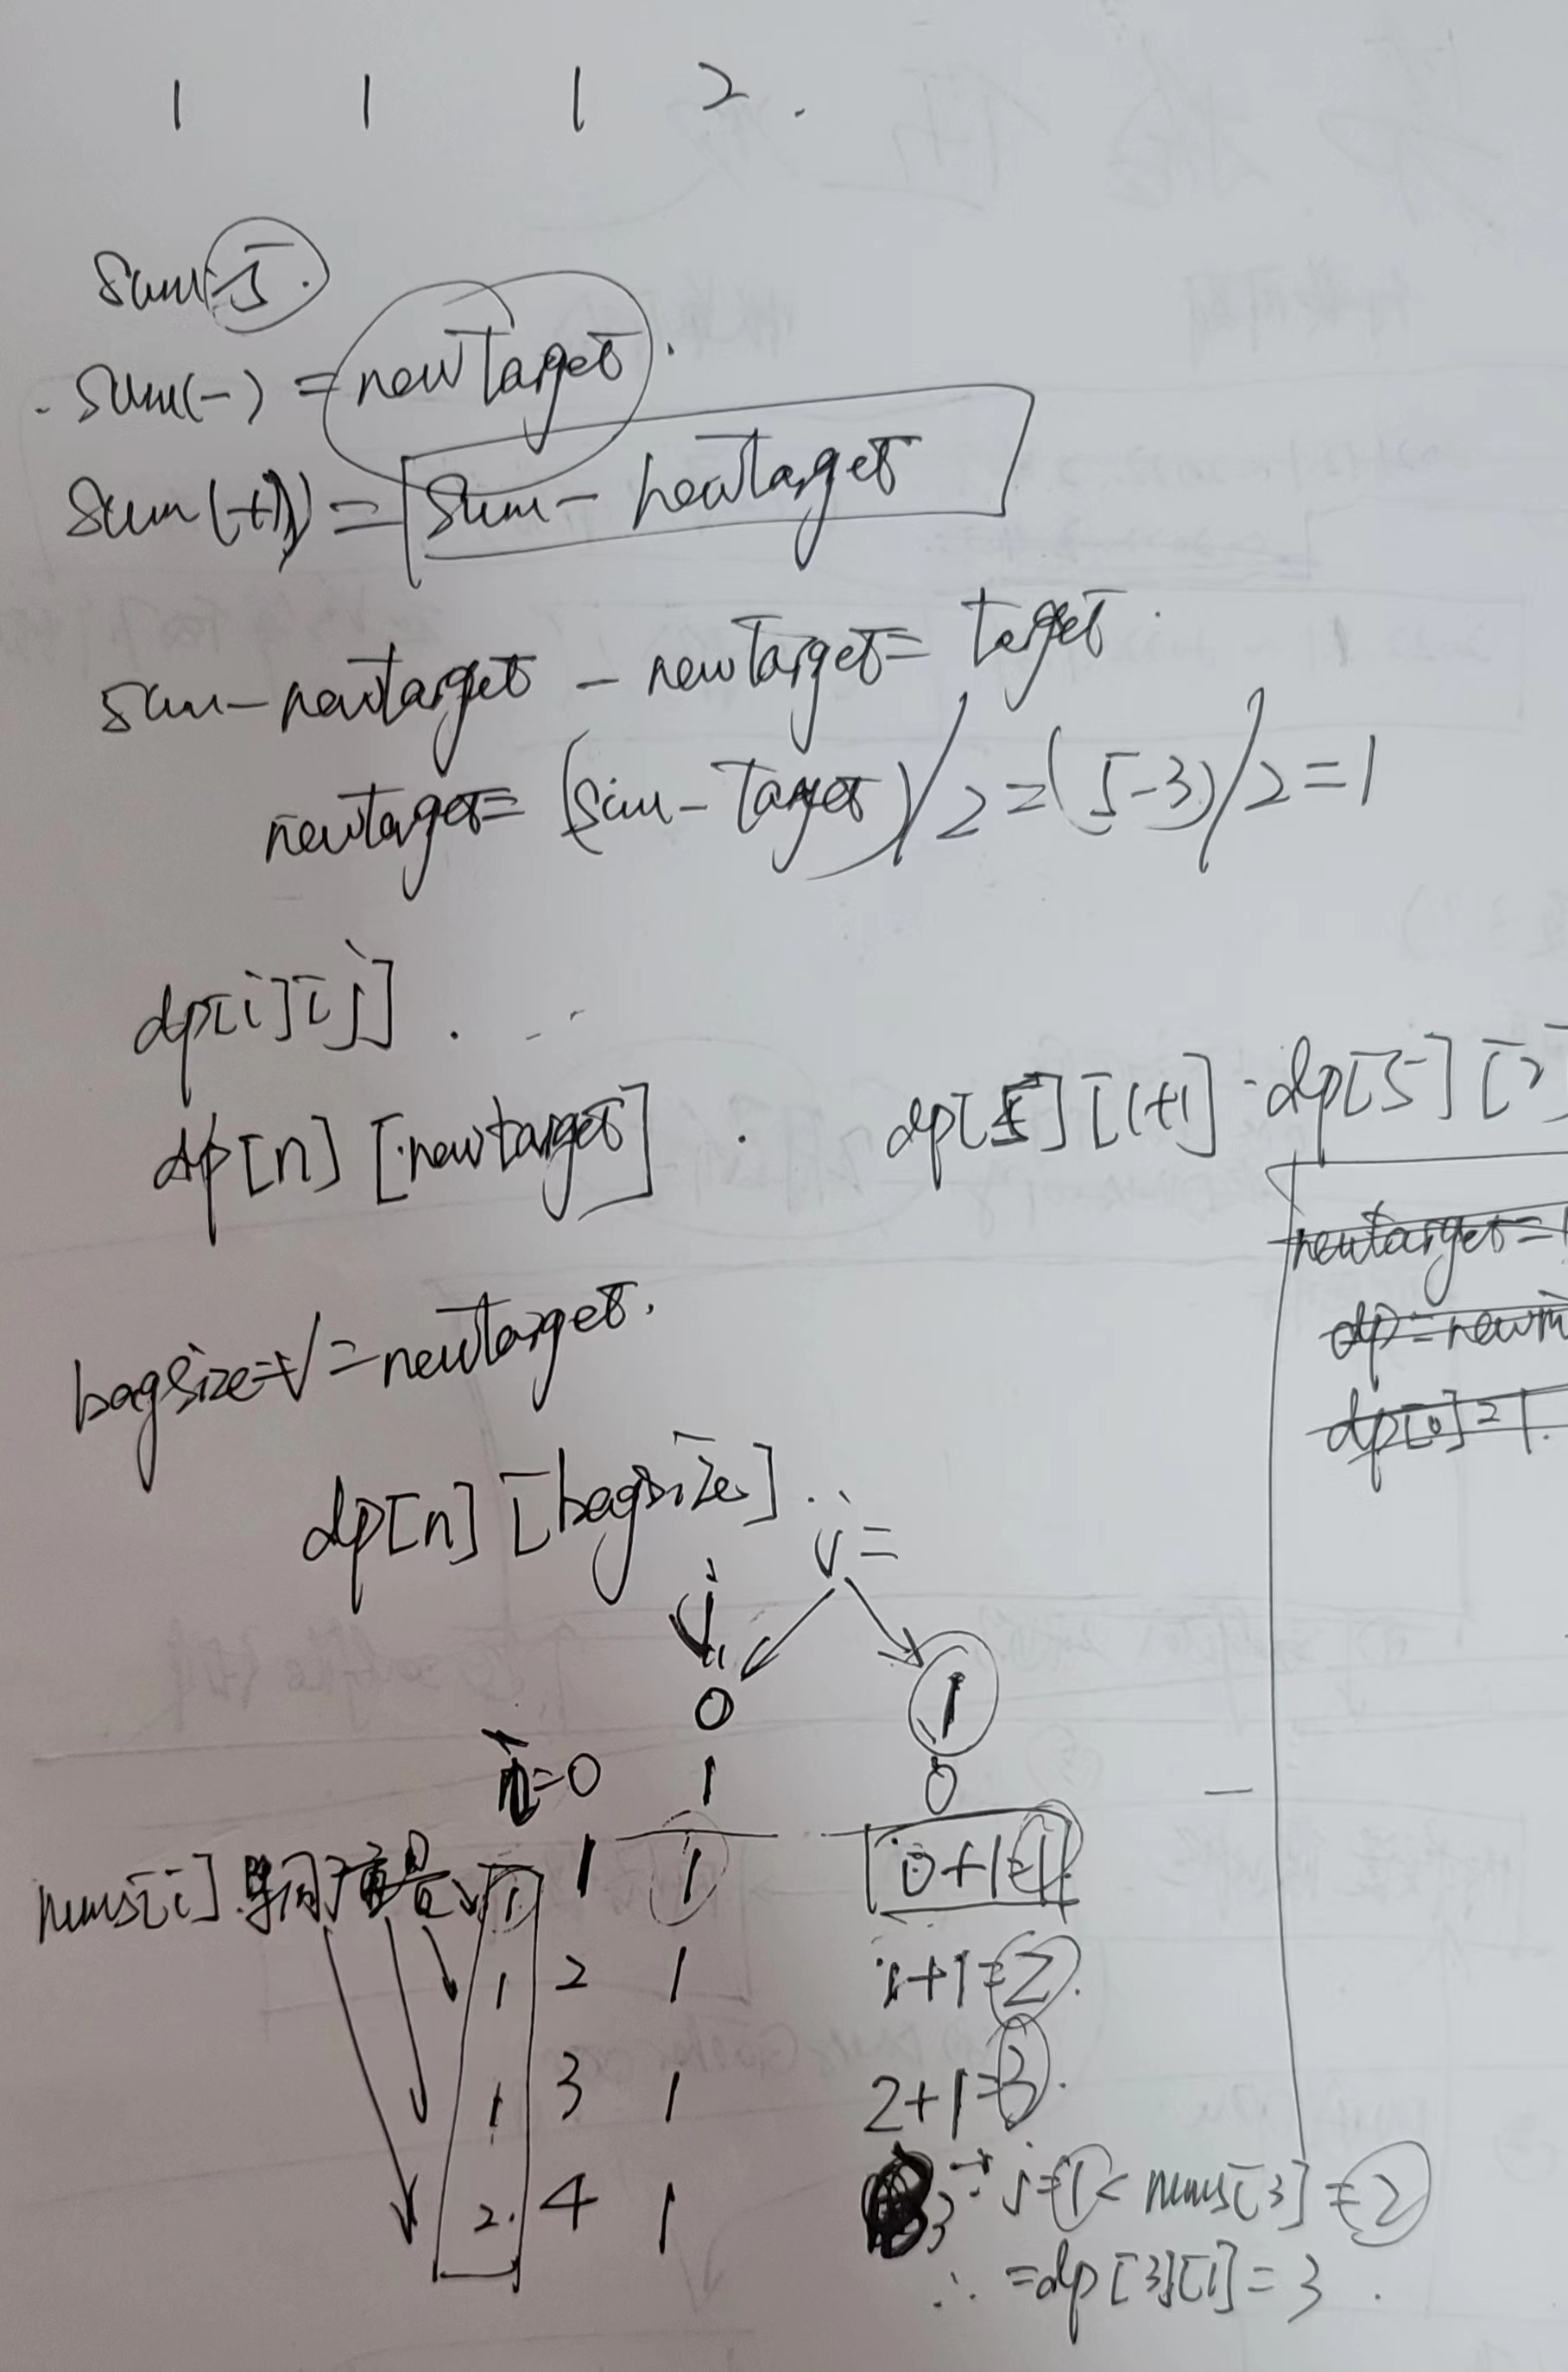 1 1 1 2 .
sum 5.
sum(-) = newTarget.
sum(+) = sum - newTarget
sum - newtarget - newTarget = target.
newtarget = (sum - Target)/2 = (5-3)/2 = 1
dp[i][j].
dp[n][newtarget] . dp[5][1+1] = dp[5][2]
newtarget=1
dp=
dp[0]=1.
bagsize = = newTarget.
dp[n][bagsize].
j= j
0 1
i=0 1 0
nums[i] 1 1 1 0+1=1
1 2 1 1+1=2.
1 3 1 2+1=3.
2. 4 1 3 → j=1 < nums[3] = 2
∴ = dp[3][1] = 3 .